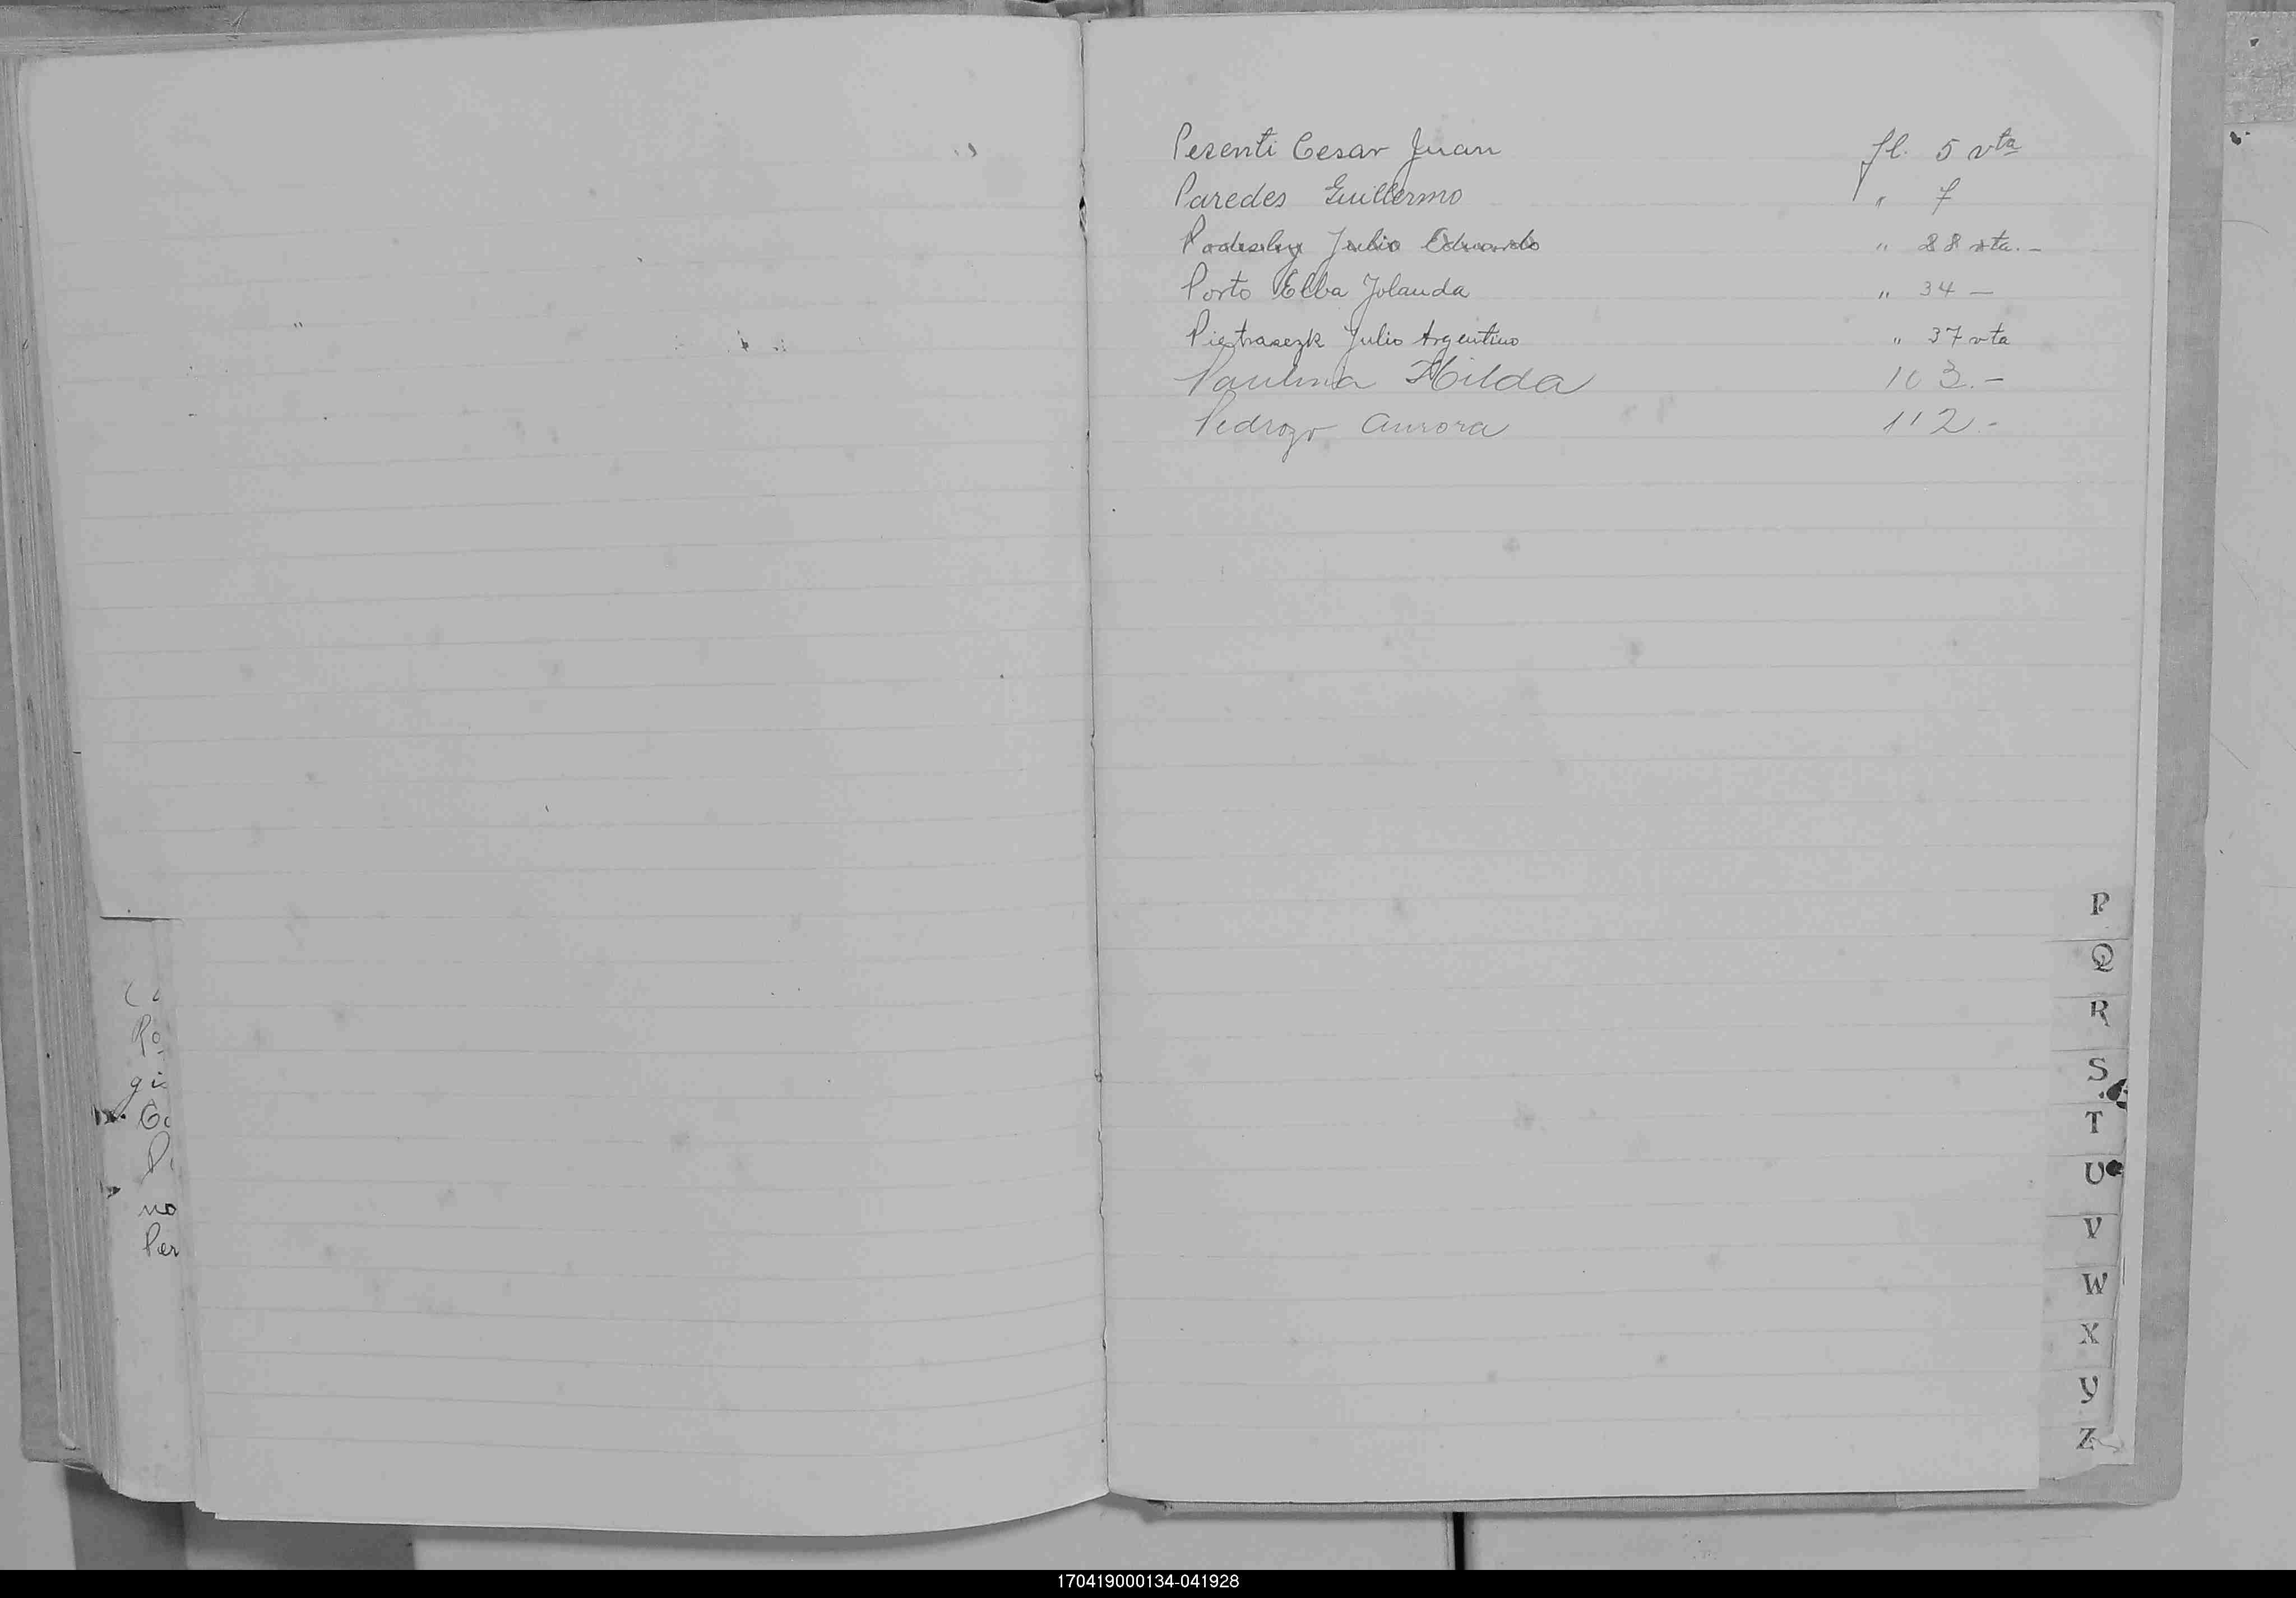 Pesenti Cesar Juan fl. 5 vta
Paredes Guillermo " 7
Julio Eduardo " 28 vta. -
Porto Elba Jolanda " 34 —
Pietrasezk Julio Argentino " 37 vta
Paulina Hilda 103. -
Pedrozo Aurora 112. -
P
Q
R
S
T
U
V
W
X
Y
Z
gi
no
Per
170419000134-041928